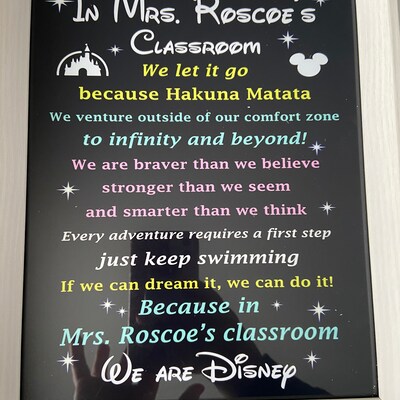 In Mrs. Roscoe's
Classroom
We let it go
because Hakuna Matata
We venture outside of our comfort zone
to infinity and beyond!
We are braver than we believe
stronger than we seem
and smarter than we think
Every adventure requires a first step
just keep swimming
If we can dream it, we can do it!
Because in
Mrs. Roscoe's classroom
We are Disney